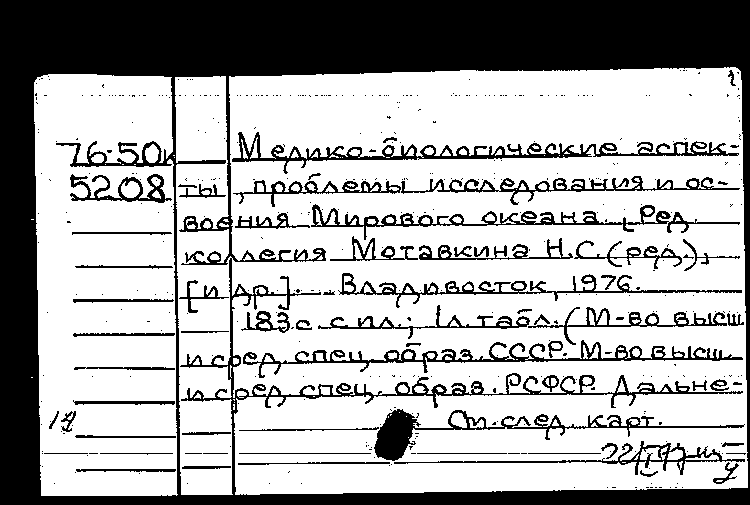 76-50к Медико-биологические аспек-
5208 ты, проблемы исследования и ос-
воения Мирового океана. [Ред.
коллегия Мотавкина Н.С. (ред.),
[и др.]. Владивосток, 1976.
183 с. с ил.; 1 л. табл. (М-во высш.
и сред. спец. образ. СССР. М-во высш.
и сред. спец. образ. РСФСР. Дальне-
См. след. карт.